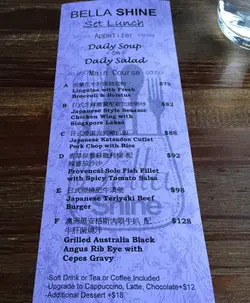 BELLA SHINE
Set Lunch
Appetizer
Daily Soup
OR
Daily Salad
Main Course
A $78
Linguine with Fresh
Broccoli & Boletus
B 日式 $82
Japanese Style Sesame
Chicken Wing with
Singapore Laksa
C 日式 $88
Japanese Katsudon Cutlet
Pork Chop with Rice
D $92
Provencal Sole Fish Fillet
with Spicy Tomato Salsa
E 日式照燒肥牛漢堡 $98
Japanese Teriyaki Beef
Burger
F 澳洲黑安格斯肉眼牛扒 配 $128
牛肝菌燒汁
Grilled Australia Black
Angus Rib Eye with
Cepes Gravy
-Soft Drink or Tea or Coffee Included
-Upgrade to Cappuccino, Latte, Chocolate+$12
-Additional Dessert +$18